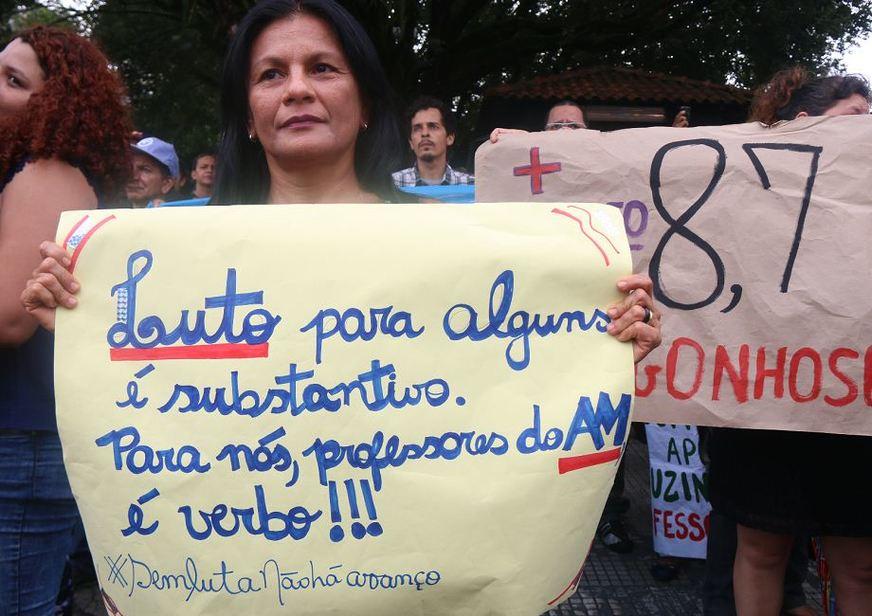 Luto para alguns
é substantivo.
Para nós, professores do AM
é verbo!!!
#SemlutaNãoháavanço
+
8,7
GONHOS
AP
UZIN
FESSO